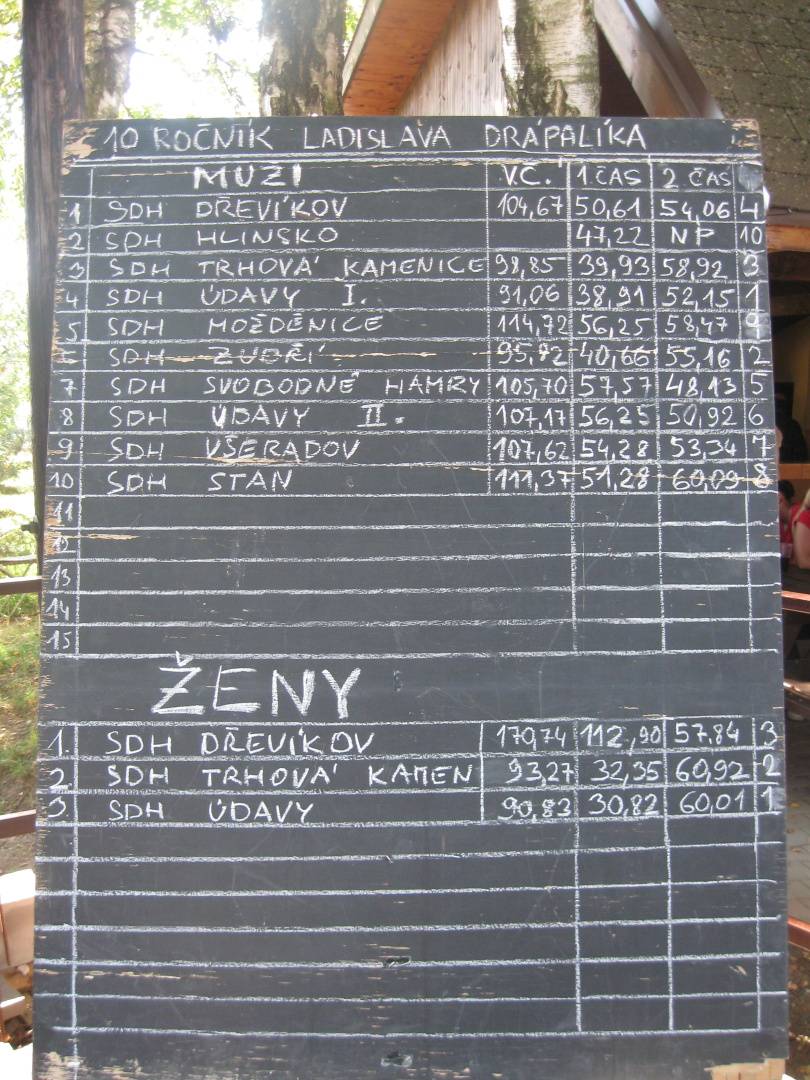 10 ROČNÍK LADISLAVA DRÁPALÍKA
MUŽI V.Č. 1 ČAS 2 ČAS
1 SDH DŘEVÍKOV 104,67 50,61 54,06 4
2 SDH HLINSKO 47,22 NP 10
3 SDH TRHOVÁ KAMENICE 98,85 39,93 58,92 3
4 SDH ÚDAVY I. 91,06 38,91 52,15 1
5 SDH MOŽDĚNICE 114,72 56,25 58,47 9
6 SDH ZUBŘÍ 95,82 40,66 55,16 2
7 SDH SVOBODNÉ HAMRY 105,70 57,57 48,13 5
8 SDH ÚDAVY II. 107,17 56,25 50,92 6
9 SDH VŠERADOV 107,62 54,28 53,34 7
10 SDH STAN 111,37 51,28 60,09 8
11
12
13
14
15
ŽENY
1. SDH DŘEVÍKOV 170,74 112,90 57.84 3
2. SDH TRHOVÁ KAMEN 93,27 32,35 60,92 2
3. SDH ÚDAVY 90,83 30,82 60,01 1